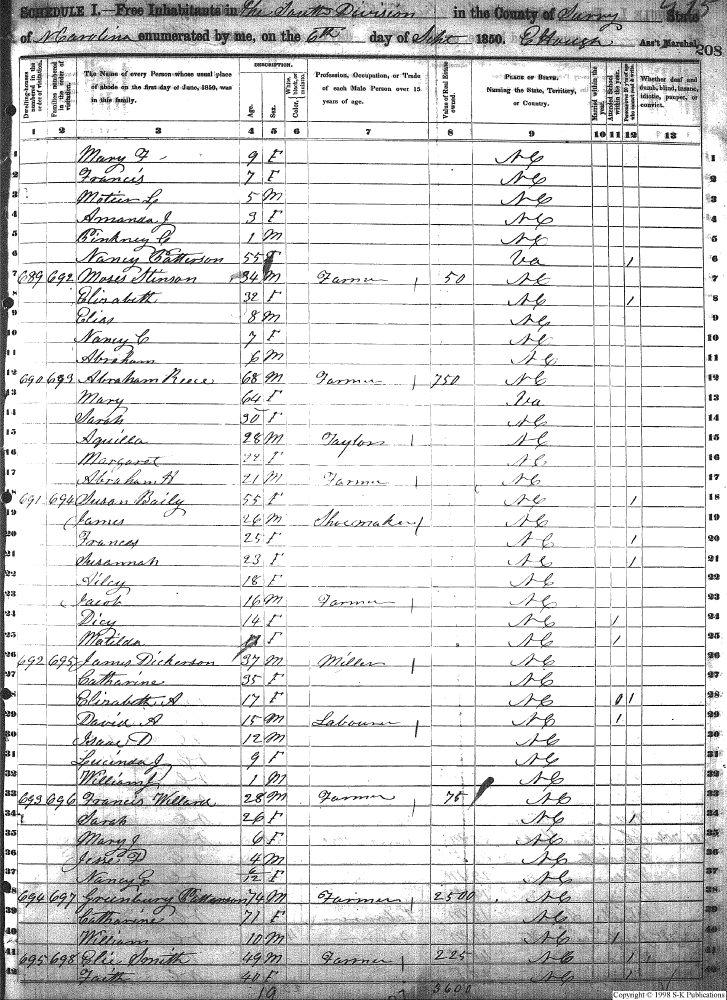 SCHEDULE I.—Free Inhabitants in The South Division in the County of Surry State
of N Carolina enumerated by me, on the 6th day of Sept 1850. Ass't Marshal.
208
Dwelling-houses numbered in the order of visitation.
Families numbered in the order of visitation.
The Name of every Person whose usual place of abode on the first day of June, 1850, was in this family.
DESCRIPTION.
Age.
Sex.
Color, White, black, or mulatto.
Profession, Occupation, or Trade of each Male Person over 15 years of age.
Value of Real Estate owned.
PLACE OF BIRTH. Naming the State, Territory, or Country.
Married within the year.
Attended School within the year.
Persons over 20 y'rs of age who cannot read & write.
Whether deaf and dumb, blind, insane, idiotic, pauper, or convict.
1 2 3 4 5 6 7 8 9 10 11 12 13
1 Mary F 9 F NC 1
2 Francis 7 F NC 2
3 5 M NC 3
4 Amanda J 3 F NC 4
5 Pinkney 1 M NC 5
6 Nancy Patterson 55 F Va 1 6
7 689 692 Moses Stinson 34 M Farmer 50 NC 7
8 Elizabeth 32 F NC 1 8
9 Elias 8 M NC 9
10 Nancy C 7 F NC 10
11 Abraham 6 M NC 11
12 690 693 Abraham Reece 68 M Farmer 750 NC 12
13 Mary 64 F Va 13
14 Sarah 30 F NC 14
15 Aquilla 28 M Taylor NC 15
16 Margaret 22 F NC 16
17 Abraham H 21 M Farmer NC 17
18 691 694 Susan Baily 55 F NC 1 18
19 James 26 M Shoemaker NC 19
20 Frances 25 F NC 1 20
21 Susannah 23 F NC 1 21
22 18 F NC 22
23 Jacob 16 M Farmer NC 23
24 Dicy 14 F NC 1 24
25 Matilda F NC 1 25
26 692 695 James Dickerson 37 M Miller NC 26
27 Catharine 35 F NC 27
28 Elizabeth A 17 F NC 1 28
29 David A 15 M Labourer NC 1 29
30 Isaac D 12 M NC 30
31 Lucinda J 9 F NC 31
32 William J 1 M NC 32
33 693 696 Francis Willard 28 M Farmer 75 NC 33
34 Sarah 26 F NC 1 34
35 Mary J 6 F NC 35
36 Jesse F 4 M NC 36
37 Nancy E 6/12 F NC 37
38 694 697 Greenbury Patterson 74 M Farmer 2500 NC 38
39 Catharine 71 F NC 39
40 William 10 M NC 1 40
41 695 698 Smith 49 M Farmer 225 NC 1 41
42 Faith 40 F NC 1 42
19 3600
Copyright © 1998 S-K Publications